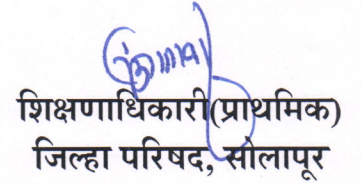 शिक्षणाधिकारी(प्राथमिक)
जिल्हा परिषद, सोलापूर